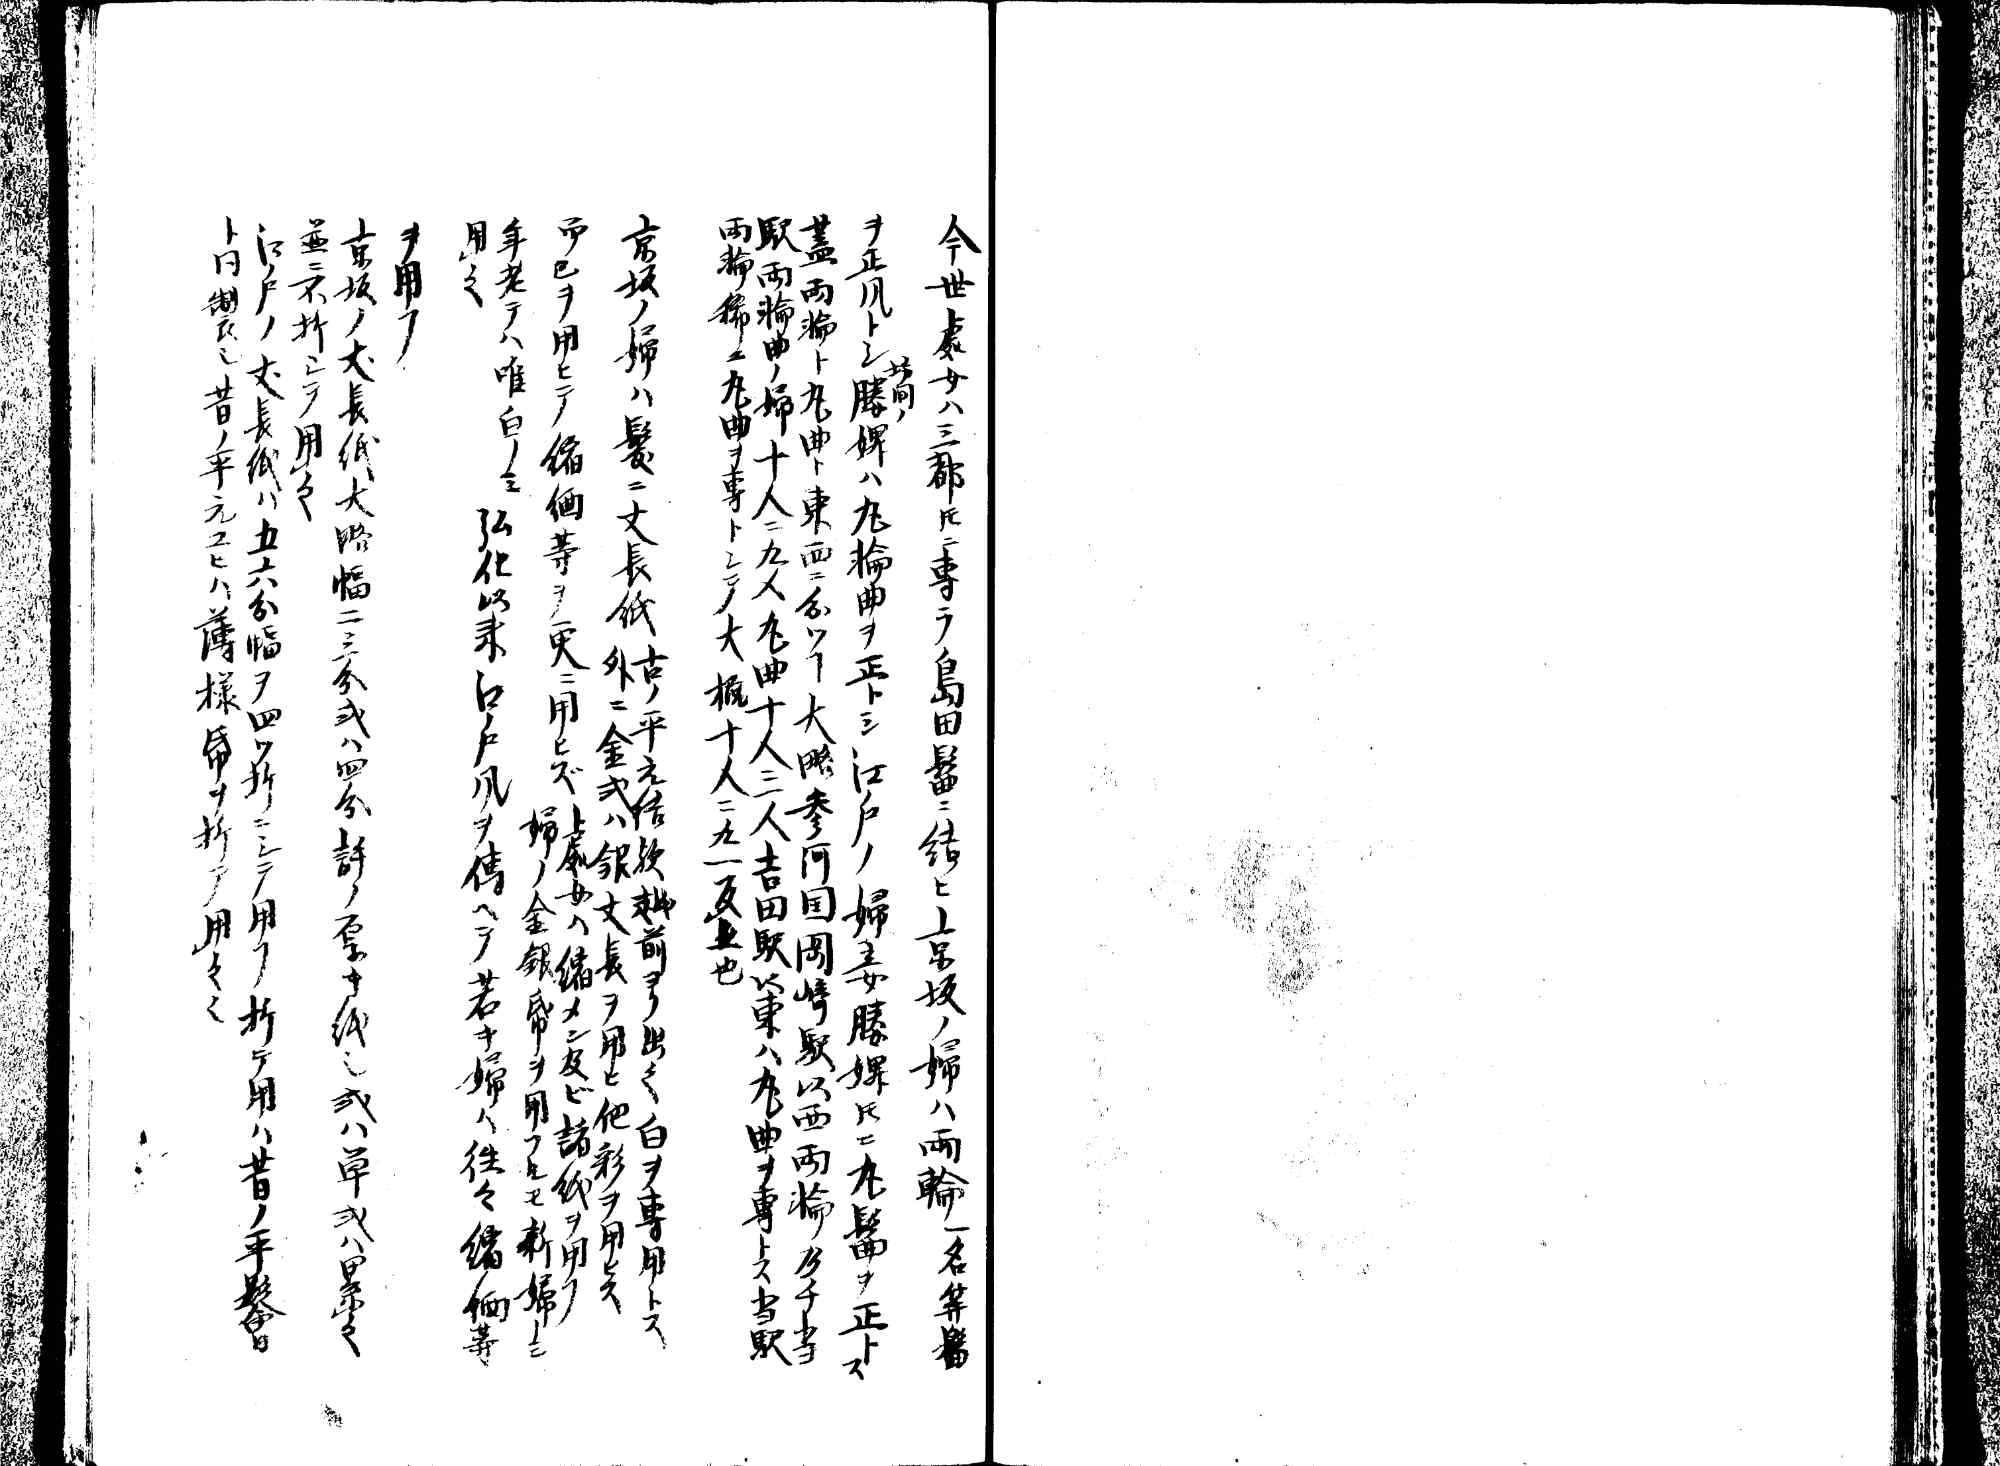 今世処女ハ三都トモニ専ラ島田髷ニ結ヒ京坂ノ婦ハ両輪一名筓髷
ヲ正風トシ坊間ノ媵婢ハ丸輪曲ヲ正トシ江戸ノ婦妻媵婢トモニ丸髷ヲ正トス
蓋両輪ト丸曲ト東西ニ分ツ丁大略参河国岡崎駅以西両輪乃チ当
駅両輪曲ノ婦十人ニ九人丸曲十人ニ一人吉田駅以東ハ丸曲ヲ専トス当駅
両輪稀ニ丸曲ヲ専トシテ大概十人ニ九一反上也
京坂ノ婦ハ髪ニ丈長紙古ノ平元結歟越前ヨリ出ル之白ヲ専用トス
外ニ金或ハ銀丈長ヲ用ヒ他彩ヲ用ヒズ
而已ヲ用ヒテ縮緬等ヲ更ニ用ヒズ処女ハ縮メン及ビ諸紙ヲ用フ
婦ノ金銀帋ヲ用フトモ新婦ノミ
年老テハ唯白ノミ用之 弘化以来江戸風ヲ傳ヘテ若キ婦ハ往々縮緬等
ヲ用フ
京坂ノ丈長紙大略幅二三分或ハ四分許ノ厚キ紙也或ハ単或ハ累之
並ニ不折シテ用之
江戸ノ丈長紙ハ五六分幅ヲ四ツ折ニシテ用フ折テ用ハ昔ノ平髻
ト同製也昔ノ平元ユヒハ薄様帋ヲ折テ用之